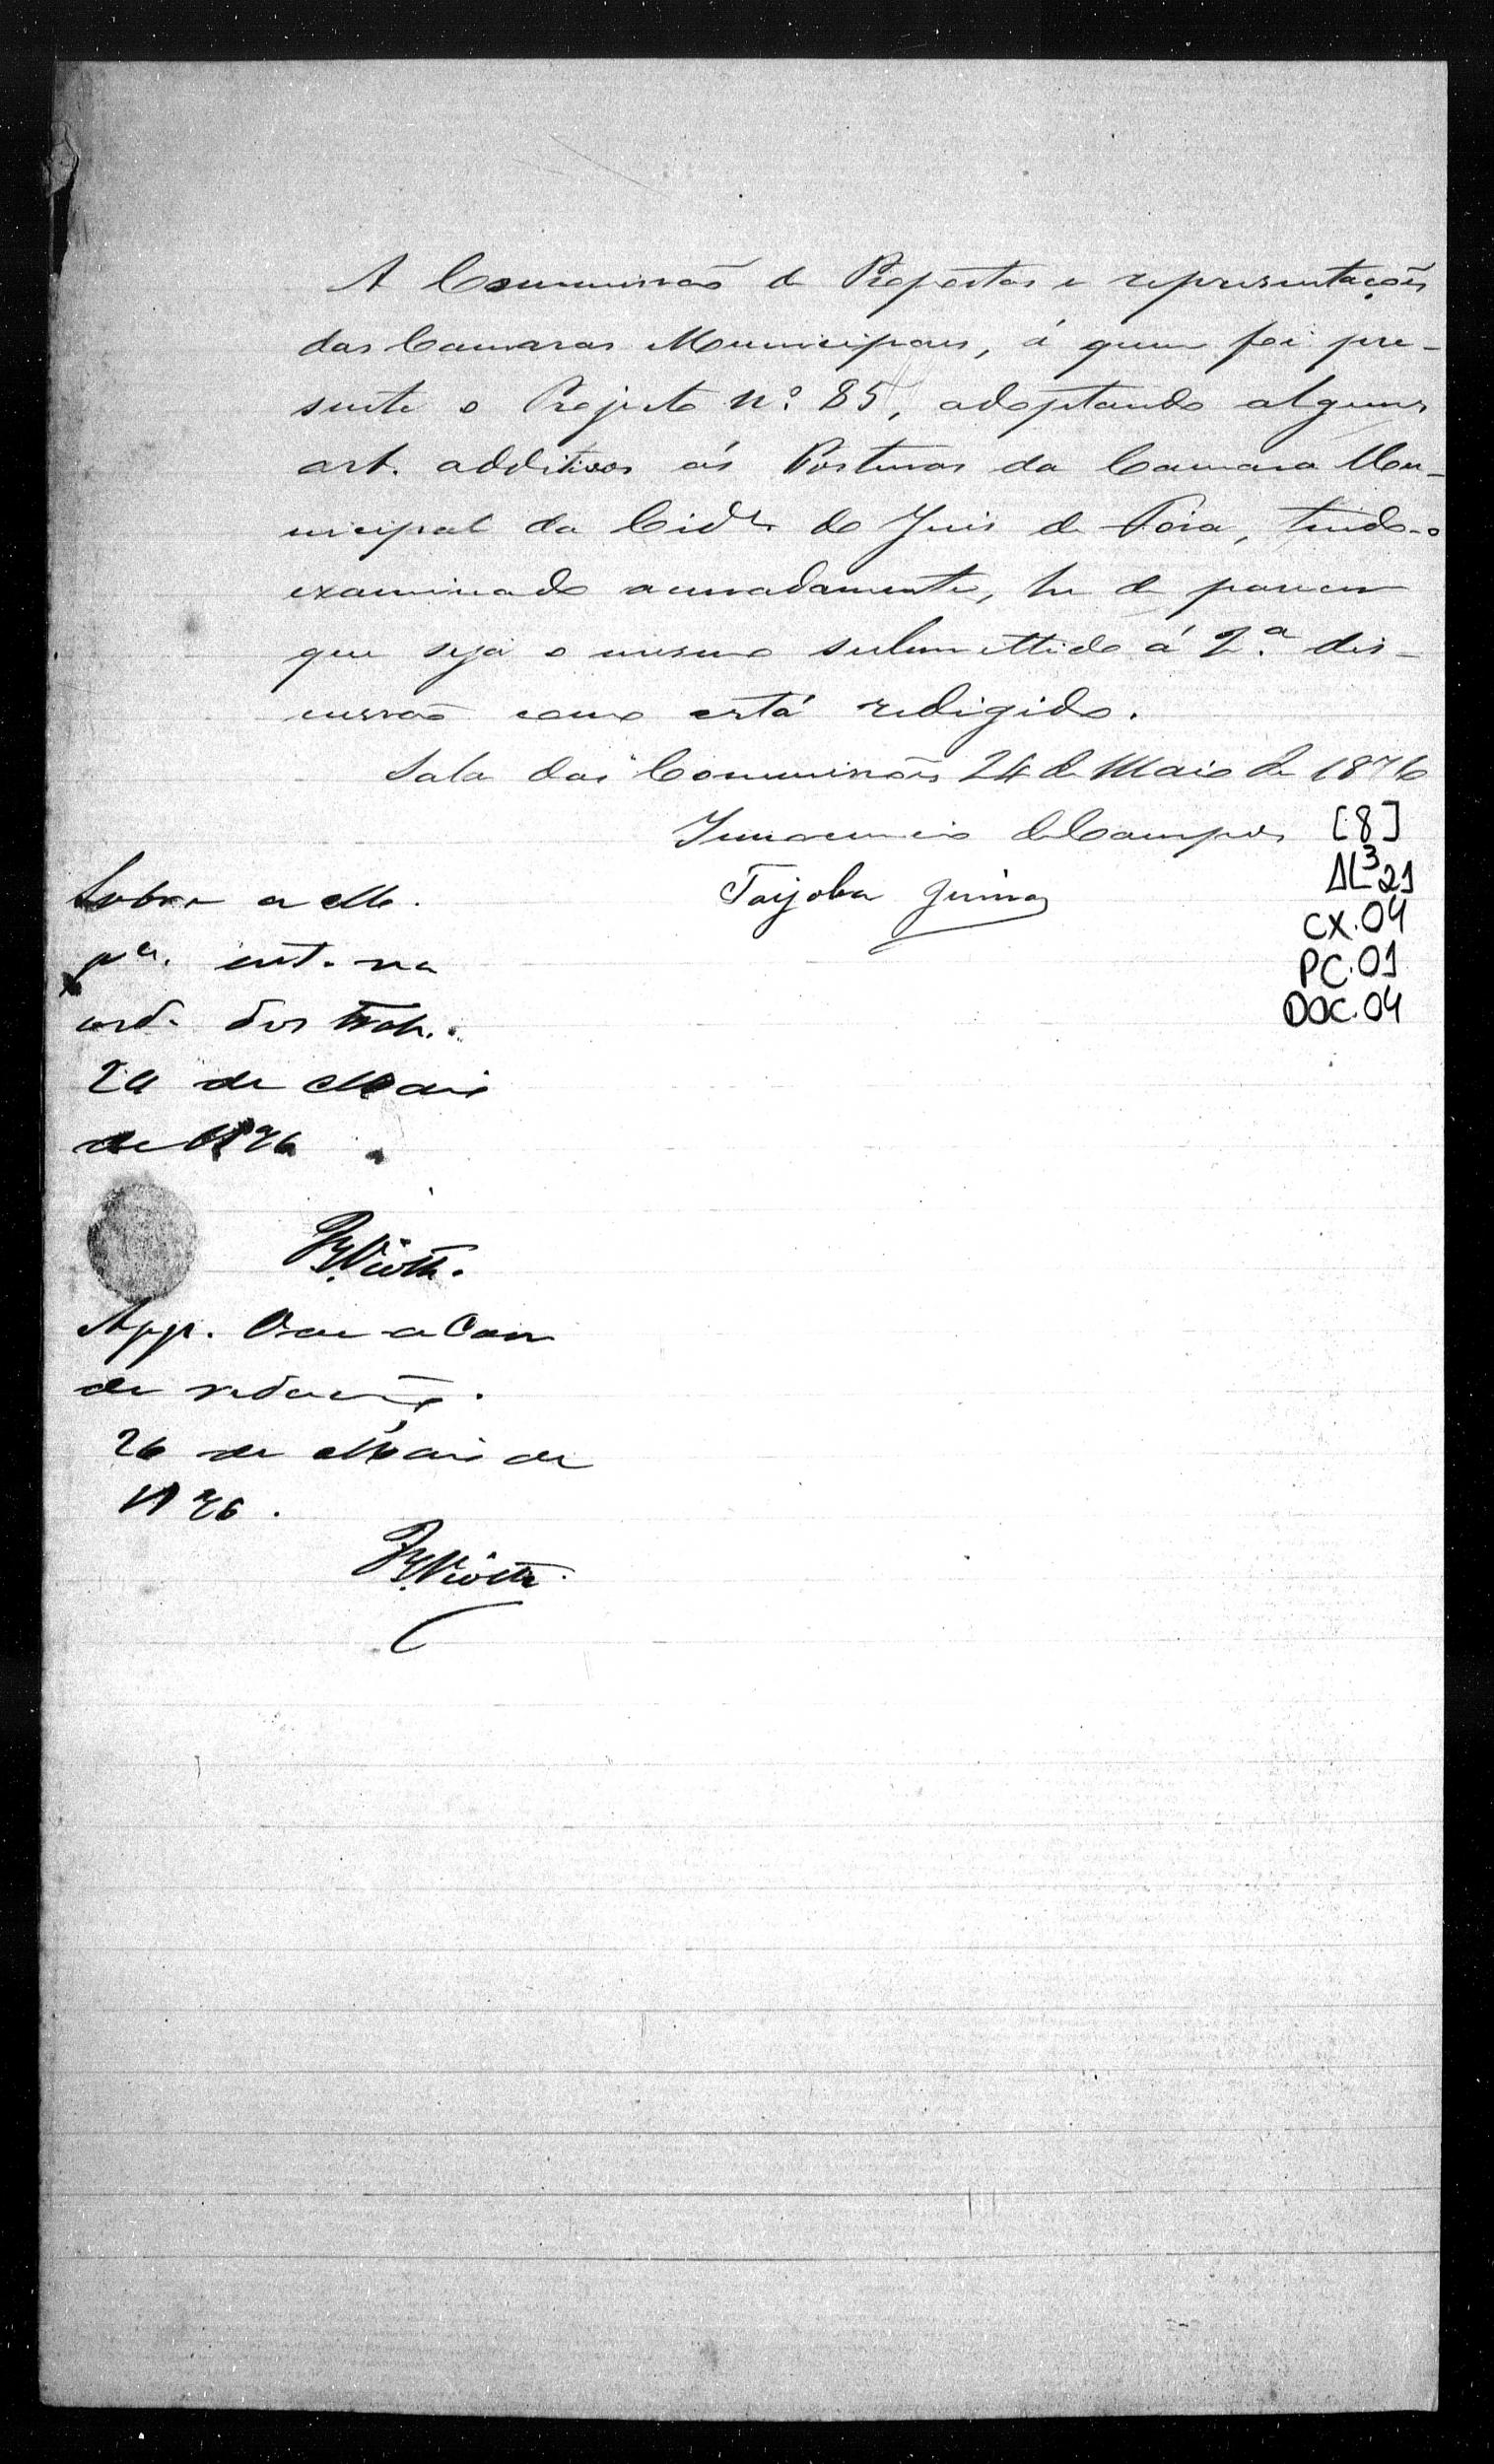 A Commissão de Propostas e representações
das Camaras Municipaes, á quem foi pre-
sente o Projecto nº 85, adoptando alguns
art. additivos ás Posturas da Camara Mu-
nicipal da Cidᵉ do Juis de Fóra, tendo-o
examinado acuradamente, he de parecer
que seja o mesmo submettido á 2ª dis-
cussão como está redigido.
Sala das Commissões 24 de Maio de 1876
Innocencio de Campos
Taijoba Junior
[8]
AL³21
CX.04
PC.01
DOC.04
Sobre a M.
pª. ent. na
ord. dos trab.
24 de Maio
de 1876
App. Vae a Com
de redacção.
26 de Maio de
1876.